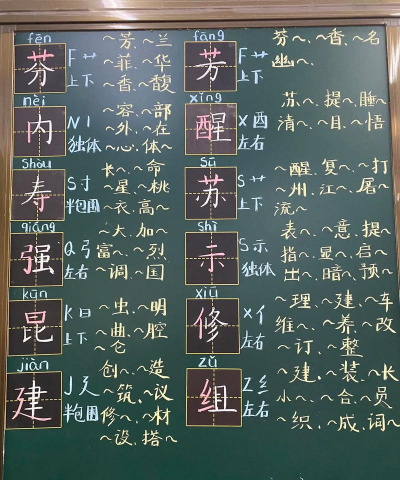 fēn
芬 F 艹 上下
～芳、～兰
～菲、～华
～香、～馥
nèi
内 N 丨 独体
～容、～部
～外、～在
～心、体～
shòu
寿 S 寸 半包围
长～、～命
～星、～桃
～衣、高～
qiáng
强 Q 弓 左右
～大、加～
富～、～烈
～调、～国
kūn
昆 K 日 上下
～虫、～明
～曲、～腔
～仑
jiàn
建 J 廴 半包围
创～、～造
～筑、～议
修～、～材
～设、搭～
fāng
芳 F 艹 上下
芬～、～香、～名
幽～、
xǐng
醒 X 酉 左右
苏～、提～、睡～
清～、～目、～悟
sū
苏 S 艹 上下
～醒、复～、～打
～州、江～、屠～
流～
shì
示 S 示 独体
表～、～意、提～
指～、显～、启～
出～、暗～、预～
xiū
修 X 亻 左右
～理、～建、～车
维～、～养、～改
～订、～整
zǔ
组 Z 纟 左右
～建、～装、～长
小～、～合、～员
～织、～成、词～